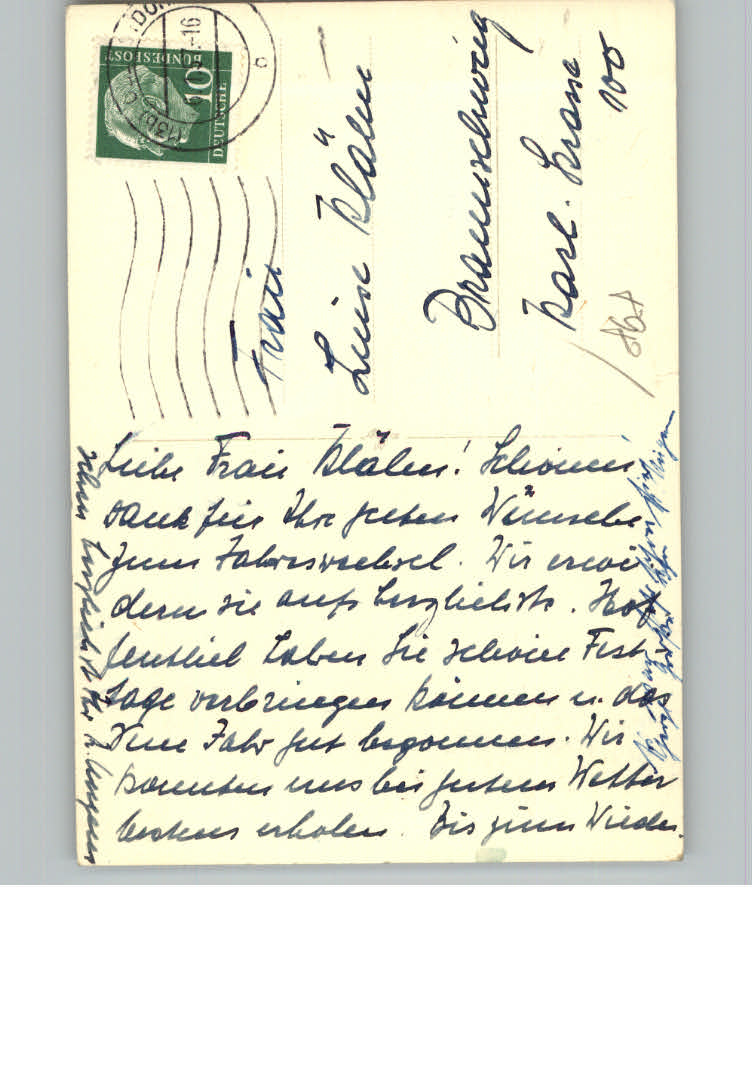 DEUTSCHE
BUNDESPOST
10
Frau
Luise Klähn
Braunschweig
Karl-Strasse
100
Liebe Frau Klähn! Schönen
Dank für Ihre guten Wünsche
zum Jahreswechsel. Wir erwi
dern sie aufs herzlichste. Hof
fentlich haben Sie schöne Fest-
tage verbringen können u. das
Neue Jahr gut begonnen. Wir
konnten uns bei gutem Wetter
bestens erholen. Bis zum Wieder-
sehen herzlichst Ihr